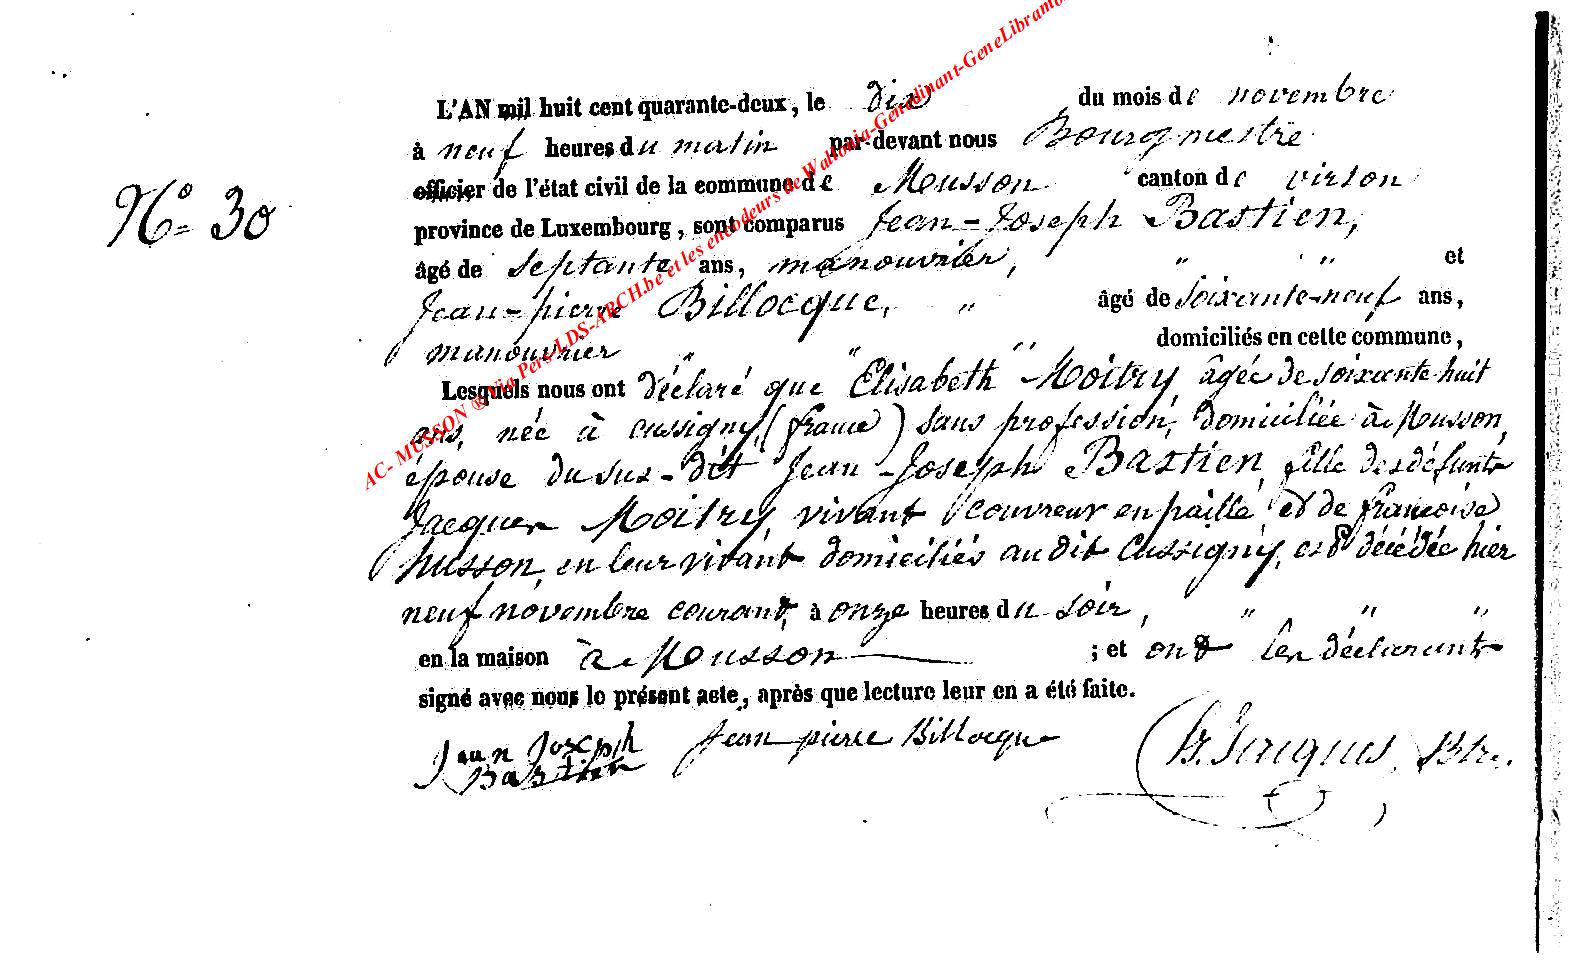 L'AN mil huit cent quarante-deux, le dix du mois de novembre
à neuf heures du matin par-devant nous Bourgmestre
officier de l'état civil de la commune de Musson canton de virton
N° 30
province de Luxembourg, sont comparus Jean-Joseph Bastien,
âgé de septante ans, manouvrier, " " et
Jean-pierre Billocque, " âgé de soixante-neuf ans,
manouvrier " " " domiciliés en cette commune,
Lesquels nous ont déclaré que Elisabeth Moitry, âgée de soixante-huit
ans, née à cussigny, (france) sans profession, domiciliée à Musson,
épouse du sus-dit Jean-Joseph Bastien, fille des défunts
Jacques Moitry, vivant couvreur en paille, et de françoise
husson, en leur vivant domiciliés au dit Cussigny, est décédée hier
neuf novembre courant, à onze heures du soir, " " "
en la maison à Musson ; et ont les déclarants
signé avec nous le présent acte, après que lecture leur en a été faite.
Jean Joseph Bastien
Jean pierre Billocque
Jacques, Btre.
AC- MUSSON ® Via Pers LDS-ARCH.be et les encodeurs de Wallonia-Genedinant-GeneLibramo